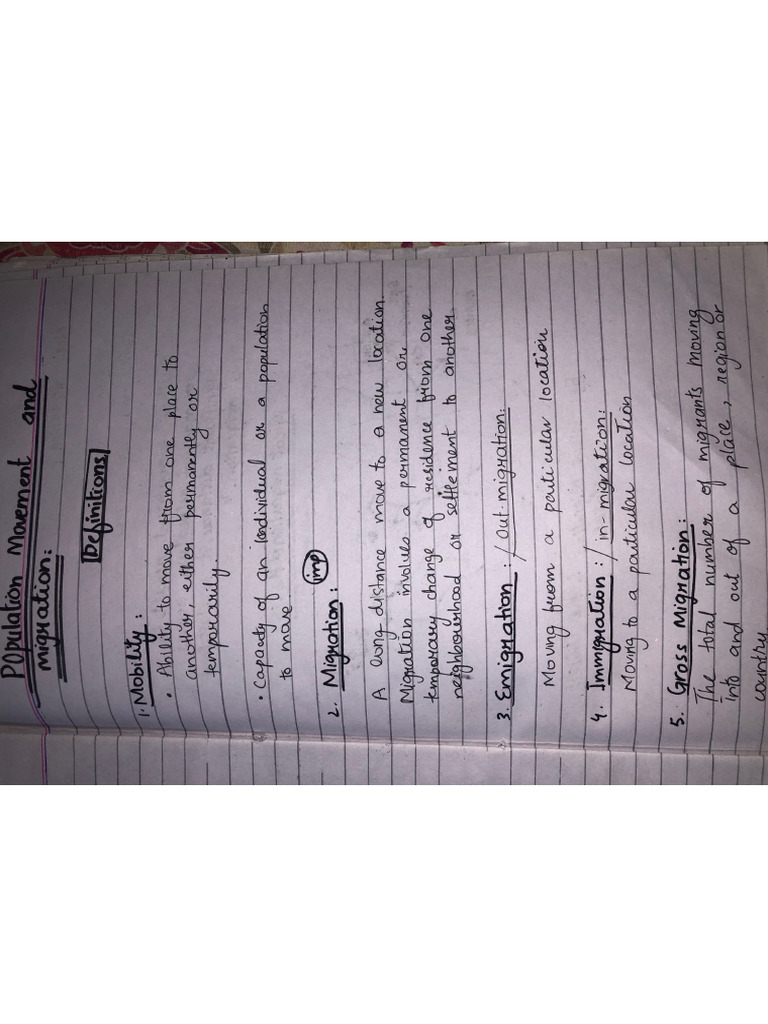 Population Movement and
migration:
Definitions
1. Mobility:
• Ability to move from one place to
another, either permanently or
temporarily.
• Capacity of an individual or a population
to move
2. Migration: imp
A long-distance move to a new location.
Migration involves a permanent or
temporary change of residence from one
neighbourhood or settlement to another.
3. Emigration: / out-migration:
Moving from a particular location
4. Immigration: / in-migration:
Moving to a particular location
5. Gross Migration:
The total number of migrants moving
into and out of a place, region or
country.